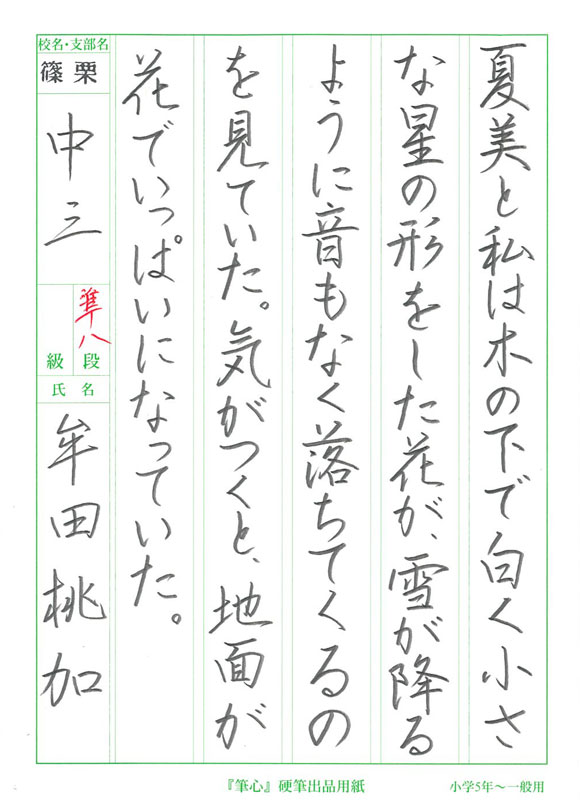 夏美と私は木の下で白く小さ
な星の形をした花が、雪が降る
ように音もなく落ちてくるの
を見ていた。気がつくと、地面が
花でいっぱいになっていた。
校名・支部名
篠栗
中三
準八
段
級
氏名
牟田桃加
『筆心』硬筆出品用紙
小学5年～一般用